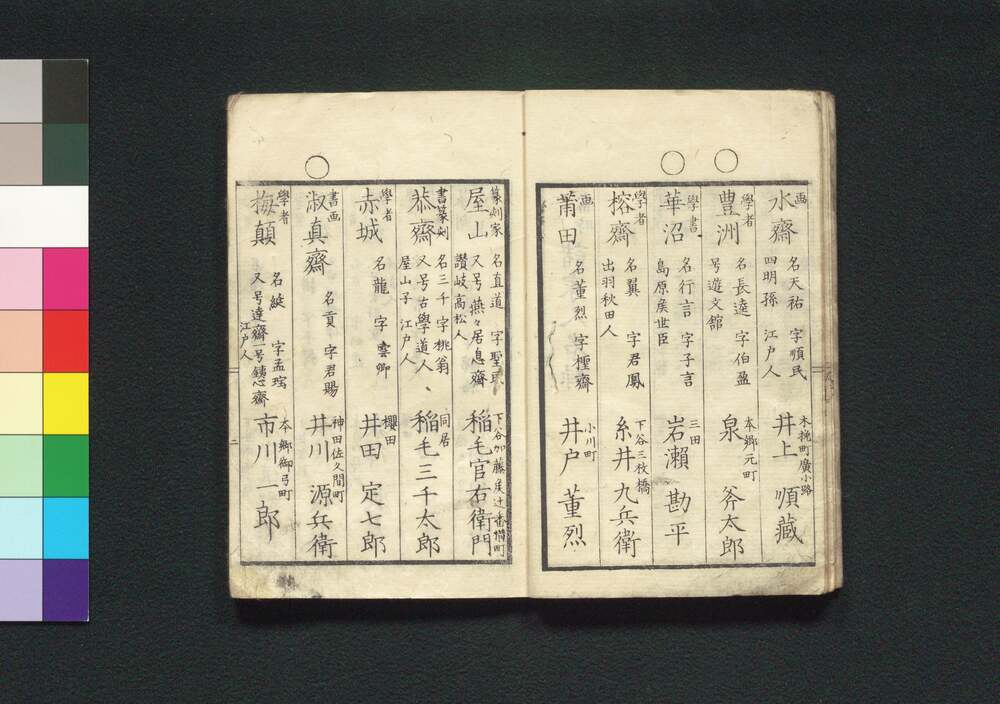 画
水齋
名天祐 字順民
四明孫 江戸人
木挽町廣小路
井上 順藏
學者
豊洲
名長達 字伯盈
号遊文館
本郷元町
泉 斧太郎
學書
華沼
名行言 字子言
島原侯世臣
三田
岩瀬 勘平
學者
榕齋
名翼 字君鳳
出羽秋田人
下谷三枚橋
糸井 九兵衛
画
莆田
名董烈 字種齋
小川町
井戸 董烈
篆刻家
屋山
名直道 字聖民
又号燕々居息齋
讃岐高松人
下谷加藤侯辻番横町
稲毛官右衛門
書篆刻
恭齋
名三千 字桃翁
又号古學道人、
屋山子 江戸人
同居
稲毛三千太郎
學者
赤城
名龍 字雲卿
櫻田
井田 定七郎
書画
淑真齋
名貢 字君賜
神田佐久間町
井川 源兵衛
學者
梅顛
名綻 字孟瑶
又号達齋一号鑄心齋
江戸人
本郷御弓町
市川 一郎
二